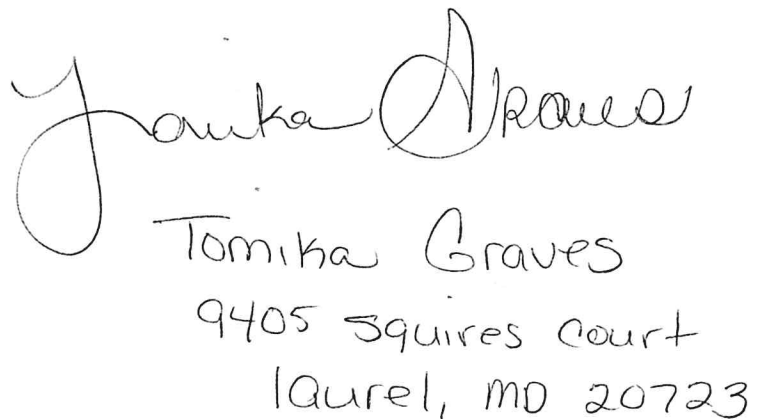 Tomika Graves
Tomika Graves
9405 Squires Court
laurel, MD 20723